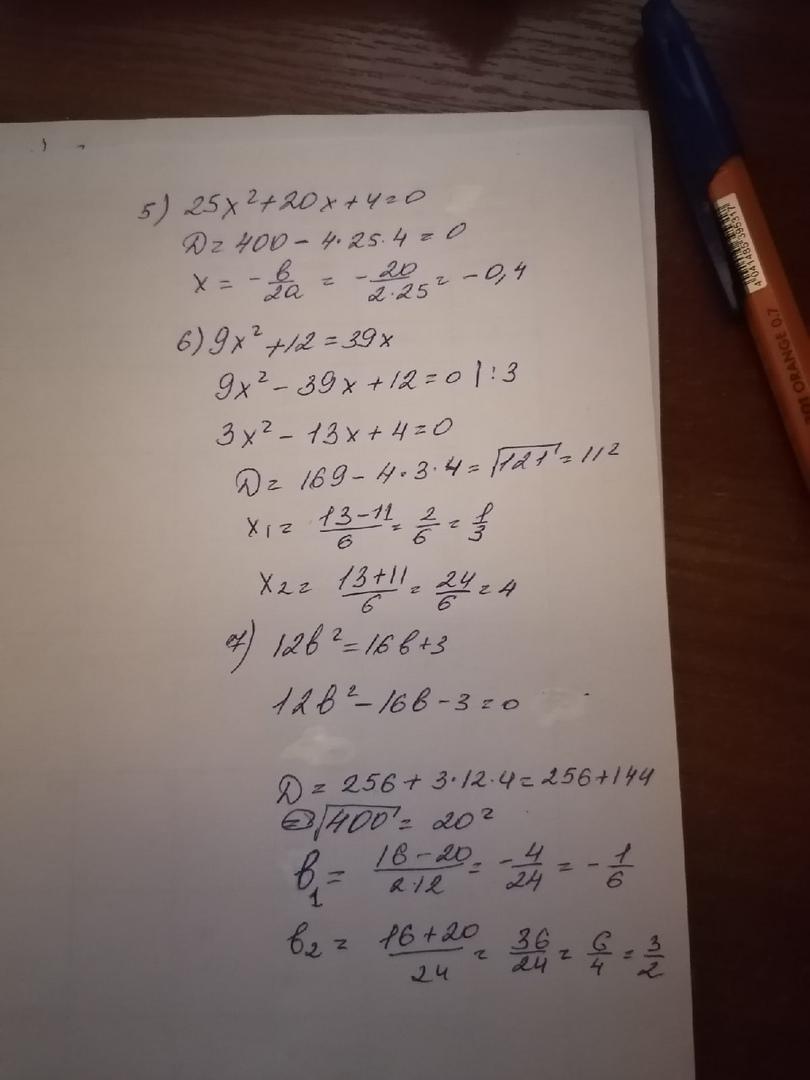 5) 25x²+20x+4=0
D=400-4·25·4=0
x = -b/2a = -20/2·25 = -0,4
6) 9x²+12=39x
9x²-39x+12=0 |:3
3x²-13x+4=0
D= 169-4·3·4=√121=11²
x₁= 13-11/6 = 2/6 = 1/3
x₂= 13+11/6 = 24/6 = 4
7) 12b²=16b+3
12b²-16b-3=0
D= 256+3·12·4=256+144
=√400 = 20²
b₁= 16-20/2·12 = -4/24 = -1/6
b₂= 16+20/24 = 36/24 = 6/4 = 3/2
4041485395317
ORANGE 0.7